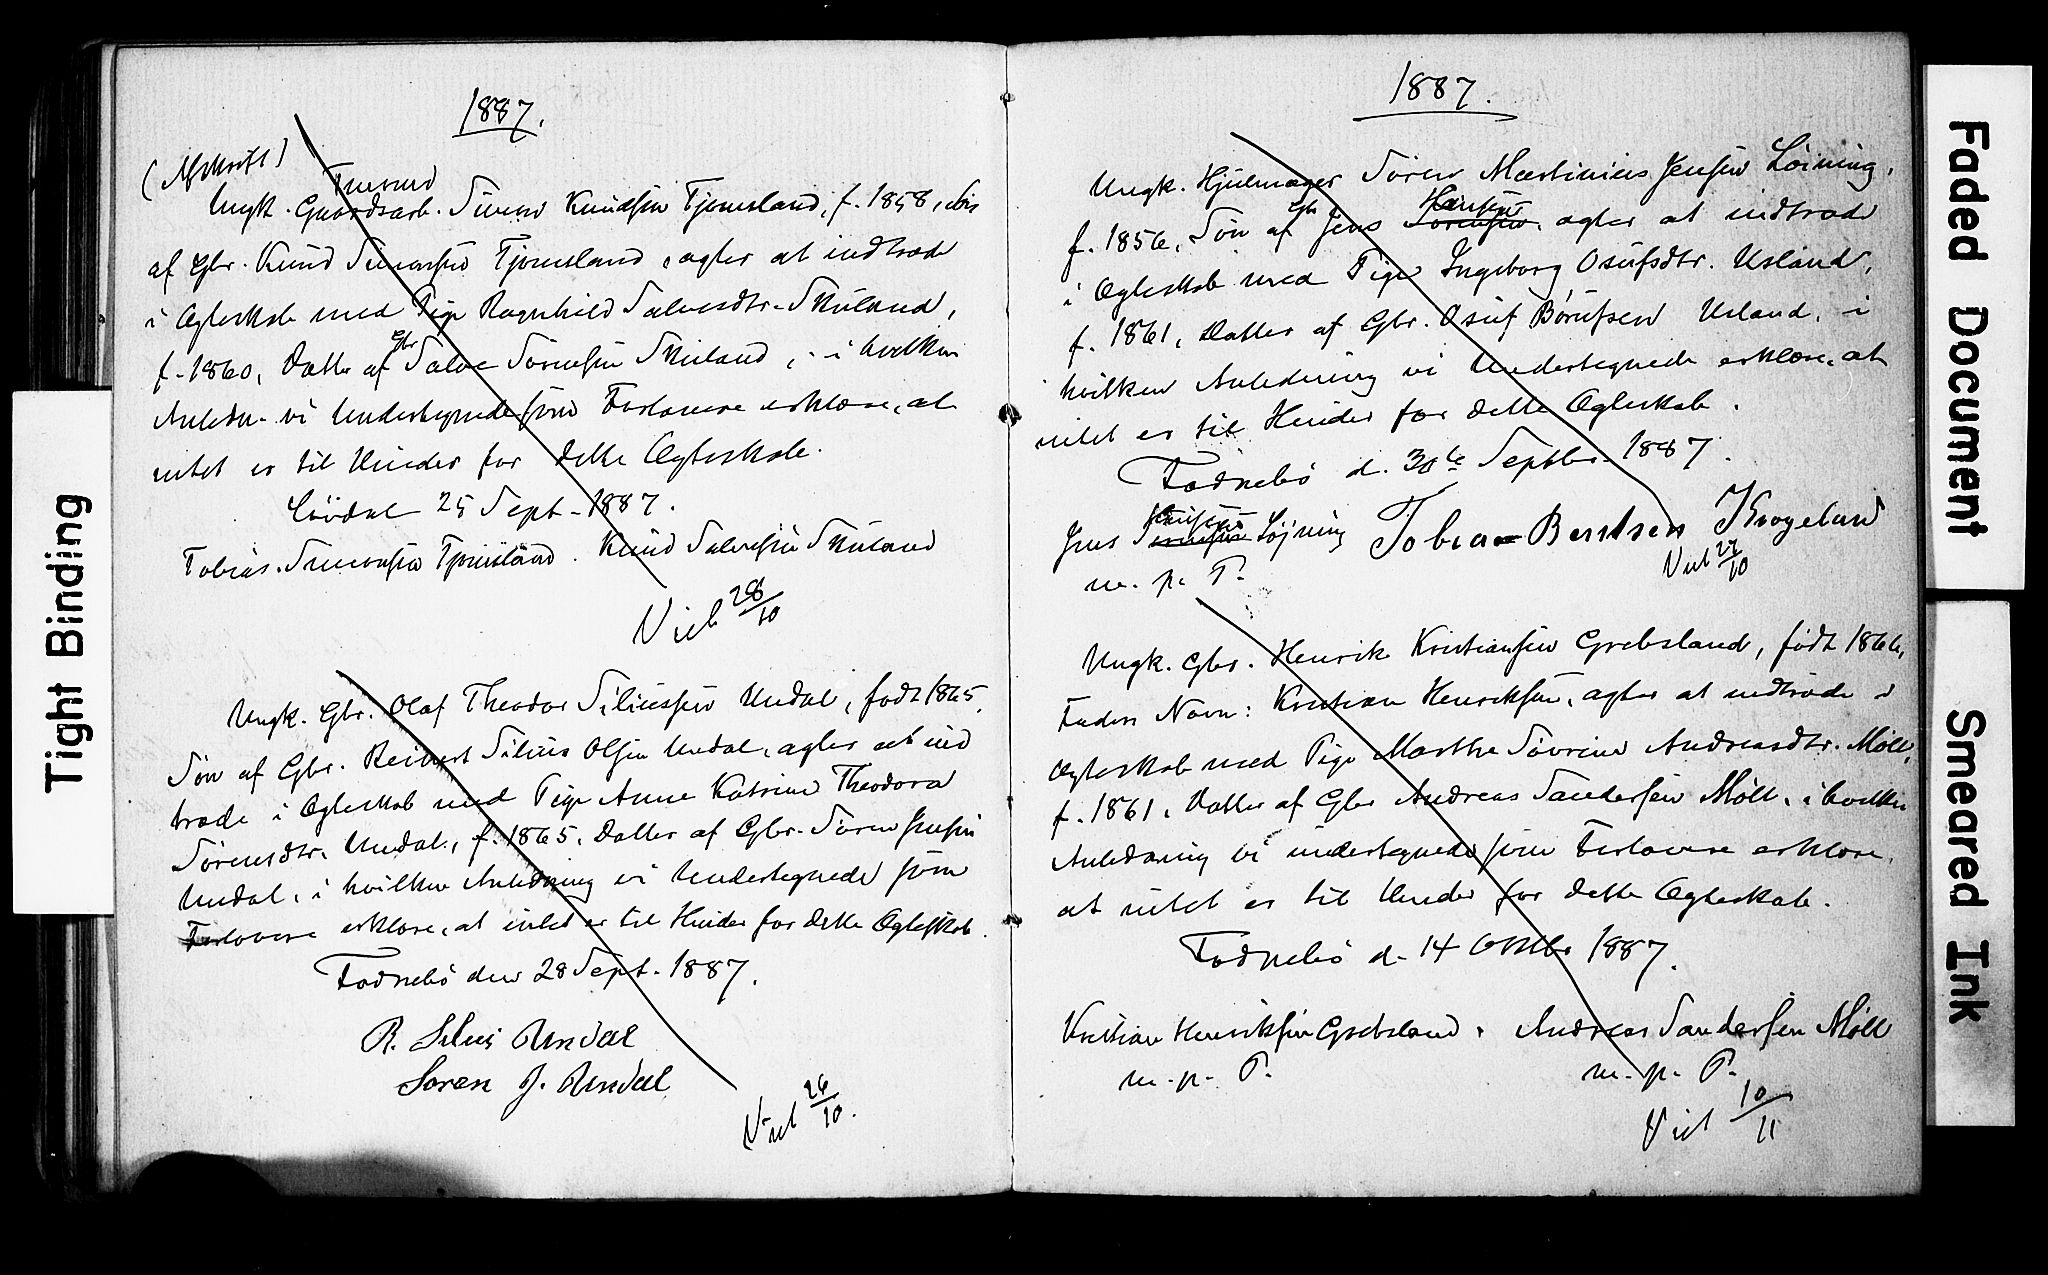 Tight Binding
1887.
(Afskrift)
Simond
Ungk. Gaardsarb. Simon Knudsen Tjomsland, f. 1858,
af Gbr. Knud Simonsen Tjomsland, agter at indtræde
i Ægteskab med Pige Ragnhild Salvesdtr. Skuland,
f. 1860, Datter af Gbr Salve Sørensen Skuland, i hvilken
Anledn. vi Undertegnede som Forlovere erklære, at
intet er til Hinder for dette Ægteskab.
Løvdal 25 Sept. 1887.
Tobias Simonsen Tjomsland. Knud Salvesen Skuland
Viet 28/10
Ungk. Gbr. Olaf Theodor Siliussen Undal, født 1865,
Søn af Gbr. Reinert Silius Olsen Undal, agter at ind
træde i Ægteskab med Pige Anne Katrine Theodora
Sørensdtr. Undal, f. 1865, Datter af Gbr. Søren Jensen
Undal, i hvilken Anledning vi Undertegnede som
Forlovere erklære, at intet er til Hinder for dette Ægteskab.
Fodnebø den 28 Sept. 1887.
R. Silius Undal
Søren J. Undal
Viet 26/10.
1887.
Ungk. Hjulmager Søren Martinius Jensen Løining,
f. 1856, Søn af Gbr Jens Sørensen Hansen agter at indtræde
i Ægteskab med Pige Ingeborg Osufsdtr. Usland,
f. 1861, Datter af Gbr. Osuf Børufsen Usland, i
hvilken Anledning vi Undertegnede erklære, at
intet er til Hinder for dette Ægteskab.
Fodnebø d. 30te Septbr. 1887.
Jens Sørensen Hansen Løjning Tobias Berntsen Krogeland
m. p. P.
Viet 27/10
Ungk. Gbr. Henrik Kristiansen Grebsland, født 1866,
Faders Navn: Kristian Henriksen, agter at indtræde i
Ægteskab med Pige Marthe Sørine Andreasdtr. Møll,
f. 1861, Datter af Gbr Andreas Sandersen Møll, i hvilken
Anledning vi undertegnede som Forlovere erklære,
at intet er til Hinder for dette Ægteskab.
Fodnebø d. 14 Oktbr 1887.
Kristian Henriksen Grebsland. Andreas Sandersen Møll
m. p. P. m. p. P.
Viet 10/11
Faded Document
Smeared Ink